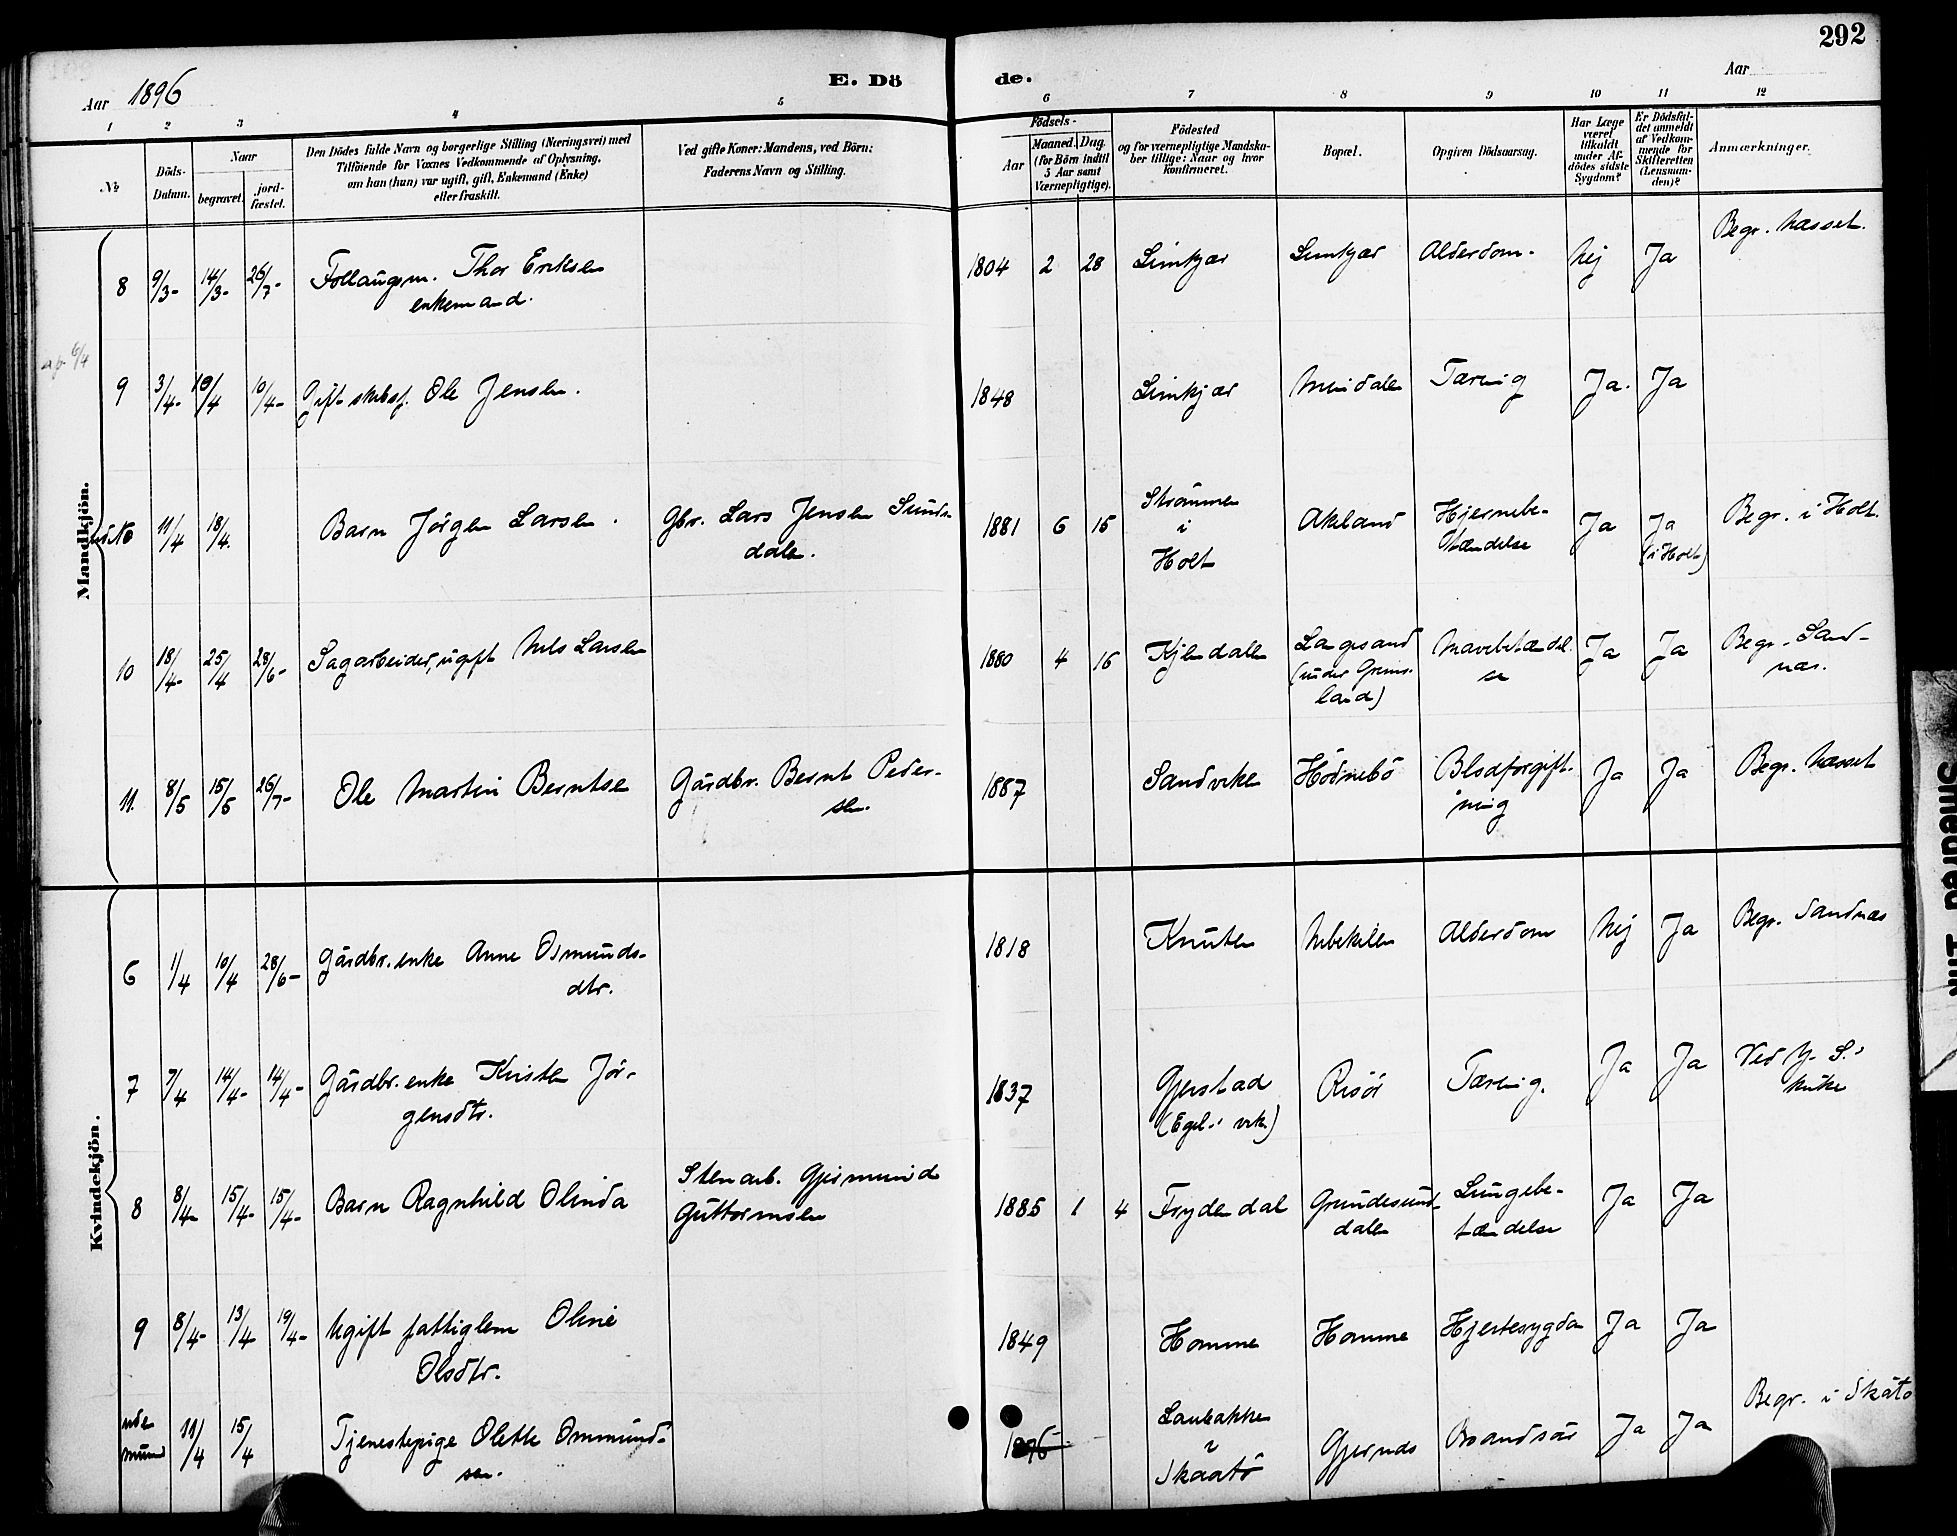 292
Aar 1896
E. Dö
de.
Aar
1 2 3 4 5 6 7 8 9 10 11 12
№
Döds-
Datum.
Naar
begravet.
jord-
fæstet.
Den Dödes fulde Navn og borgerlige Stilling (Næringsvei) med
Tilföiende for Voxnes Vedkommende af Oplysning,
om han (hun) var ugift, gift, Enkemand (Enke)
eller fraskilt.
Ved gifte Koner: Mandens, ved Börn:
Faderens Navn og Stilling.
Födsels-
Aar
Maaned. Dag.
(for Börn indtil
5 Aar samt
Værnepligtige).
Födested
og for værnepligtige Mandska-
ber tillige: Naar og hvor
konfirmeret.
Bopæl.
Opgiven Dödsaarsag.
Har Læge
været
tilkaldt
under Af-
dödes sidste
Sygdom?
Er Dödsfal-
det anmeldt
af Vedkom-
mende for
Skifteretten
(Lensman-
den)?
Anmærkninger.
Mandkjön.
8 9/3- 14/3- 26/7- Follaugsm. Thor Eriksen
enkemand.
1804 2 28 Limkjær Limkjær Alderdom. Nej Ja Begr. Næsset.
6/4
9 3/4- 10/4 10/4- Gift skibsf. Ole Jensen.
1848 Limkjær Mindalen Tæring Ja. Ja
11/4 18/4. Barn Jørgen Larsen. Gbr. Lars Jensen Sunds-
dalen.
1881 6 15 Strømmen
i
Holt
Akeland Hjernebe-
tændelse
Ja Ja
(i Holt)
Begr. i Holt.
10 18/4- 25/4 28/6- Sagarbeider, ugift Nils Larsen
1880 4 16 Kjendalen Langesand
(under Grims-
land)
Mavebetændel-
se
Ja Ja Begr. Sand-
næs.
11. 8/5 15/5 26/7- Ole Martin Berntsen Gårdbr. Bernt Peder-
sen.
1887 Sandviken Hödnebö Blodforgift-
ning
Ja Ja Begr. Næsset
Kvindekjön.
6 1/4 10/4 28/6- Gårdbr.enke Anne Osmunds-
dtr.
1818 Knuten Nebekilen Alderdom Nej Ja Begr. Sandnæs
7 7/4 14/4- 14/4- Gårdbr.enke Kristen Jør-
gensdtr.
1837 Gjerstad
Risör Tæring. Ja Ja Ved
8 8/4- 15/4- 15/4- Barn Ragnhild Olinda Stenarb. Gjermund
Guttormsen
1885 1 4 Frydendal Grundesund-
dalen
Lungebe-
tændelse
Ja Ja
9 8/4- 13/4 19/4- Ugift fattiglem Oline
Olsdtr.
1849 Homme Homme Hjertesygdom Ja Ja
11/4 15/4 Tjenestepige Olette Ommund-
sen.
1896 Laubakken
i
Skaatö
Gjernes Brandsår Ja Ja Begr. i Skåtö